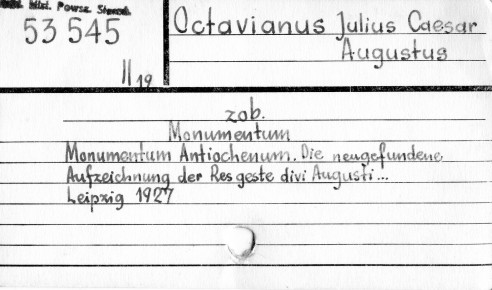 Bibl. Hist. Powsz. Staroż.
53 545
II 19
Octavianus Julius Caesar
Augustus
zob.
Monumentum
Monumentum Antiochenum. Die neugefundene
Aufzeichnung der Res geste divi Augusti...
Leipzig 1927